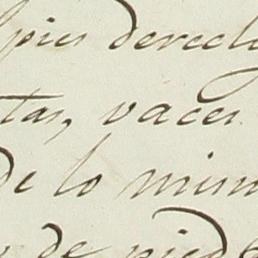 pies derech
tas, vaces
de lo mism
de pied